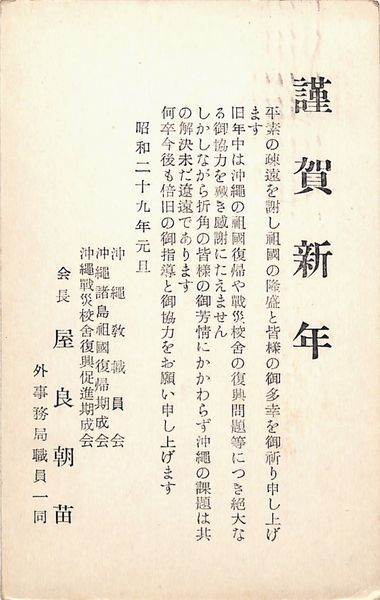 謹賀新年
平素の疎遠を謝し祖國の隆盛と皆様の御多幸を御祈り申し上げ
ます
旧年中は沖縄の祖國復帰や戰災校舎の復興問題等につき絶大な
る御協力を戴き感謝にたえません
しかしながら折角の皆様の御芳情にかかわらず沖縄の課題は其
の解決未だ遼遠であります
何卒今後も倍旧の御指導と御協力をお願い申し上げます
昭和二十九年元旦
沖縄教職員会
沖縄諸島祖國復帰期成会
沖縄戰災校舎復興促進期成会
会長 屋良朝苗
外事務局職員一同